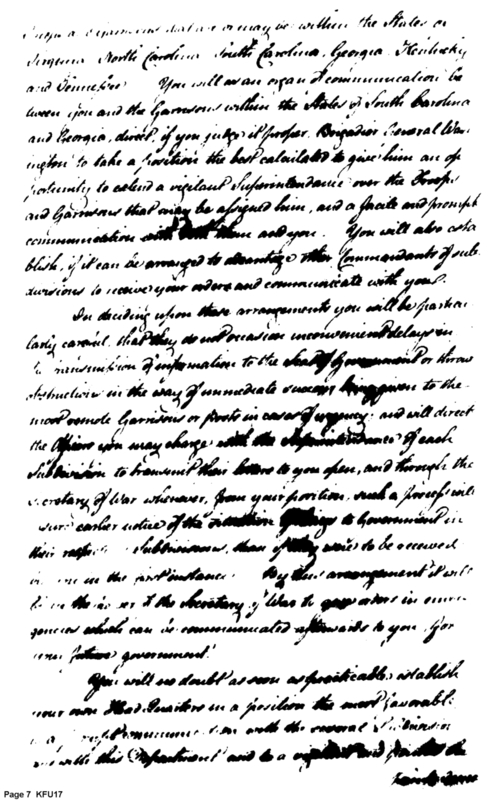 may be within the States of
Virginia North Carolina South Carolina, Georgia Kentucky
and Tennessee You will as an organ of communication be
tween you and the Garrisons within the States of South Carolina
and Georgia, direct, if you judge it proper, Brigadier General Wash
ington to take a position the best calculated to give him an op
portunity to extend a vigilant Superintendance over the Troops
and Garrisons that may be assigned him, and a facile and prompt
communication with both them and you. You will also esta
blish, if it can be arranged to advantage other Commandants of sub
divisions to receive your orders and communicate with you.
In deciding upon these arrangements you will be particu
larly careful that they do not occasion inconvenient delays in
transmission of information to the Seat of Government or throw
obstructions in the way of immediate succour being given to the
most remote Garrisons or posts in cases of urgency: and will direct
the Officers you may charge with the Superintendance of each
Subdivision to transmit their letters to you open, and through the
Secretary of War whenever, from your position, such a process will
earlier notice of the situation of things to Government in
their Subdivisions, than if they were to be received
in the first instance By this arrangement it will
be in the power of the Secretary of War to give orders in emer
gencies which can be communicated afterwards to you for
your future government.
You will no doubt as soon as practicable, establish
your own Head Quarters in a position the most favorable
to a communication with the several
and with this Department and to a vigilant and